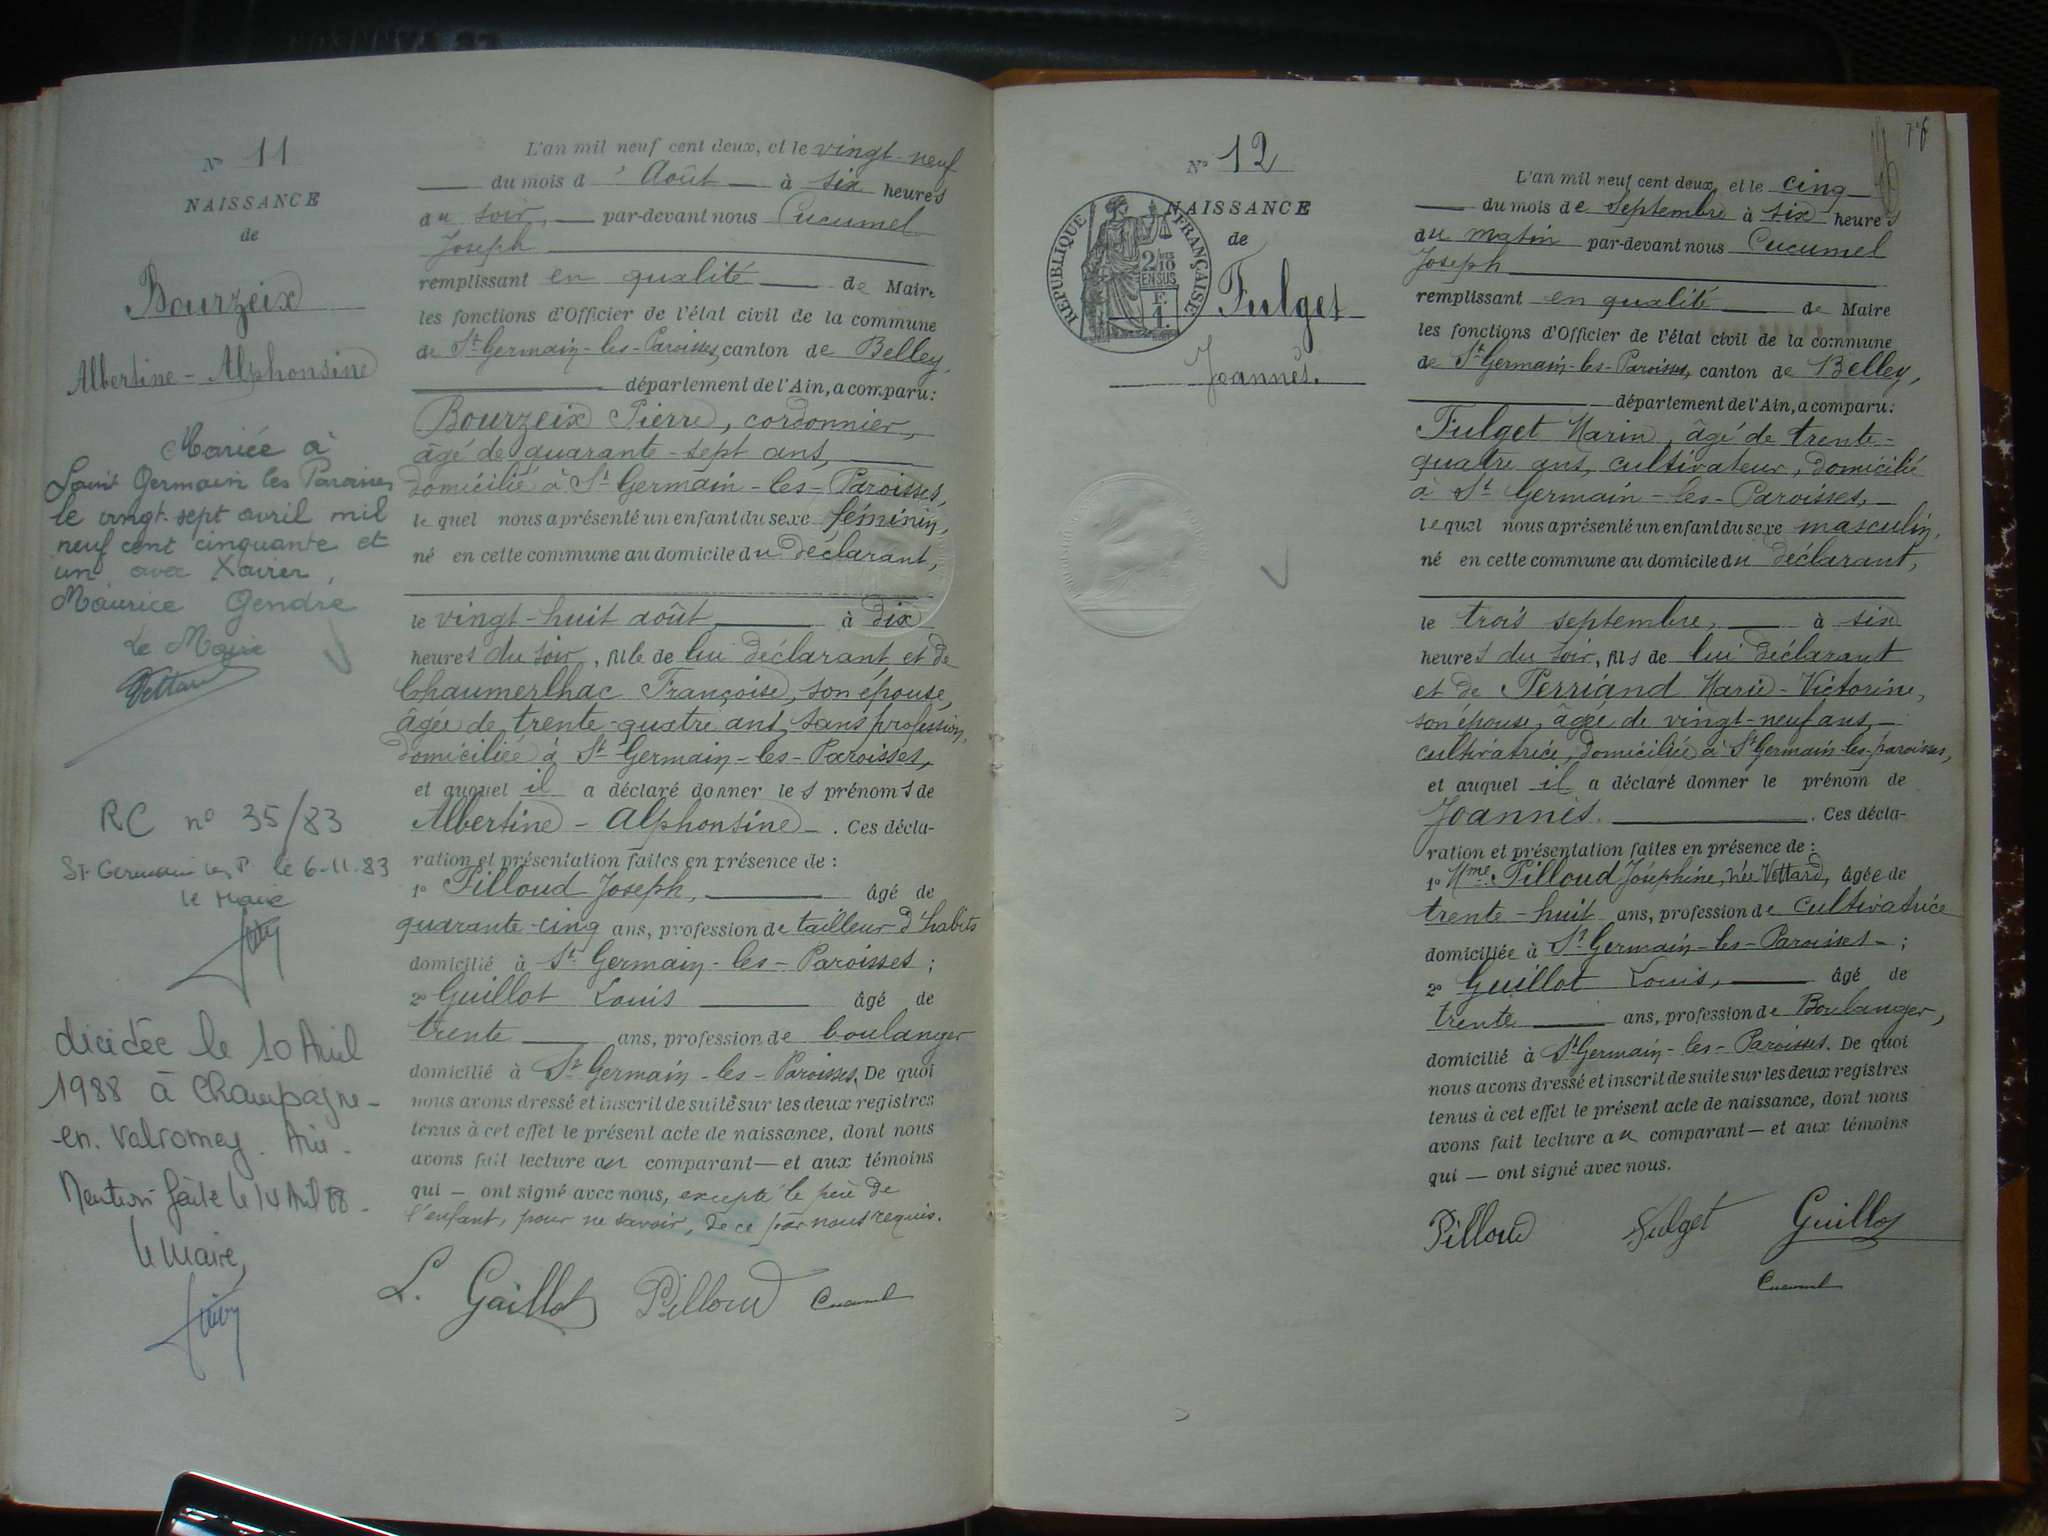 N° 11
NAISSANCE
de
Bourzeix
Albertine - Alphonsine
Mariée à
Saint Germain les Paroisses
le vingt-sept avril mil
neuf cent cinquante et
un avec Xavier,
Maurice Gendre
Le Maire
Vettard
RC n° 35/83
St Germain les P. le 6-11-83
le Maire
décédée le 10 Avril
1988 à Champagne-
-en-Valromey. Ain.
Mention faite le 14 Avril 88.
le Maire,
L'an mil neuf cent deux, et le vingt-neuf
du mois d'Août à six heures
du soir, par-devant nous Cucumel
Joseph
remplissant en qualité de Maire
les fonctions d'Officier de l'état civil de la commune
de St Germain-les-Paroisses, canton de Belley,
département de l'Ain, a comparu:
Bourzeix Pierre, cordonnier,
âgé de quarante-sept ans,
domicilié à St Germain-les-Paroisses,
lequel nous a présenté un enfant du sexe féminin,
né en cette commune au domicile du déclarant,
le vingt-huit août à dix
heures du soir, fille de lui déclarant et de
Chaumerlhac Françoise, son épouse,
âgée de trente-quatre ans, sans profession,
domiciliée à St Germain-les-Paroisses,
et auquel il a déclaré donner les prénoms de
Albertine - Alphonsine. Ces décla-
ration et présentation faites en présence de :
1° Pilloud Joseph, âgé de
quarante-cinq ans, profession de tailleur d'habits
domicilié à St Germain-les-Paroisses ;
2° Guillot Louis âgé de
trente ans, profession de boulanger
domicilié à St Germain-les-Paroisses. De quoi
nous avons dressé et inscrit de suite sur les deux registres
tenus à cet effet le présent acte de naissance, dont nous
avons fait lecture au comparant — et aux témoins
qui — ont signé avec nous, excepté le père de
l'enfant, pour ne savoir, de ce par nous requis.
L. Guillot Pilloud Cucumel
N° 12
NAISSANCE
de
RÉPUBLIQUE FRANÇAISE
2/10
EN SUS
F.
1.
Fulget
Joannès.
L'an mil neuf cent deux, et le cinq
du mois de septembre à six heures
du matin par-devant nous Cucumel
Joseph
remplissant en qualité de Maire
les fonctions d'Officier de l'état civil de la commune
de St Germain-les-Paroisses, canton de Belley,
département de l'Ain, a comparu:
Fulget Marin, âgé de trente-
quatre ans, cultivateur, domicilié
à St Germain-les-Paroisses,
lequel nous a présenté un enfant du sexe masculin,
né en cette commune au domicile du déclarant,
le trois septembre, à six
heures du soir, fils de lui déclarant
et de Perriand Marie-Victorine,
son épouse, âgée de vingt-neuf ans,
cultivatrice, domiciliée à St Germain-les-paroisses,
et auquel il a déclaré donner le prénom de
Joannès. Ces décla-
ration et présentation faites en présence de :
1° Mme Pilloud Joséphine, née Vettard, âgée de
trente-huit ans, profession de cultivatrice
domiciliée à St Germain-les-Paroisses ;
2° Guillot Louis, âgé de
trente ans, profession de Boulanger,
domicilié à St Germain-les-Paroisses. De quoi
nous avons dressé et inscrit de suite sur les deux registres
tenus à cet effet le présent acte de naissance, dont nous
avons fait lecture au comparant — et aux témoins
qui — ont signé avec nous.
Pilloud Fulget Guillot
Cucumel